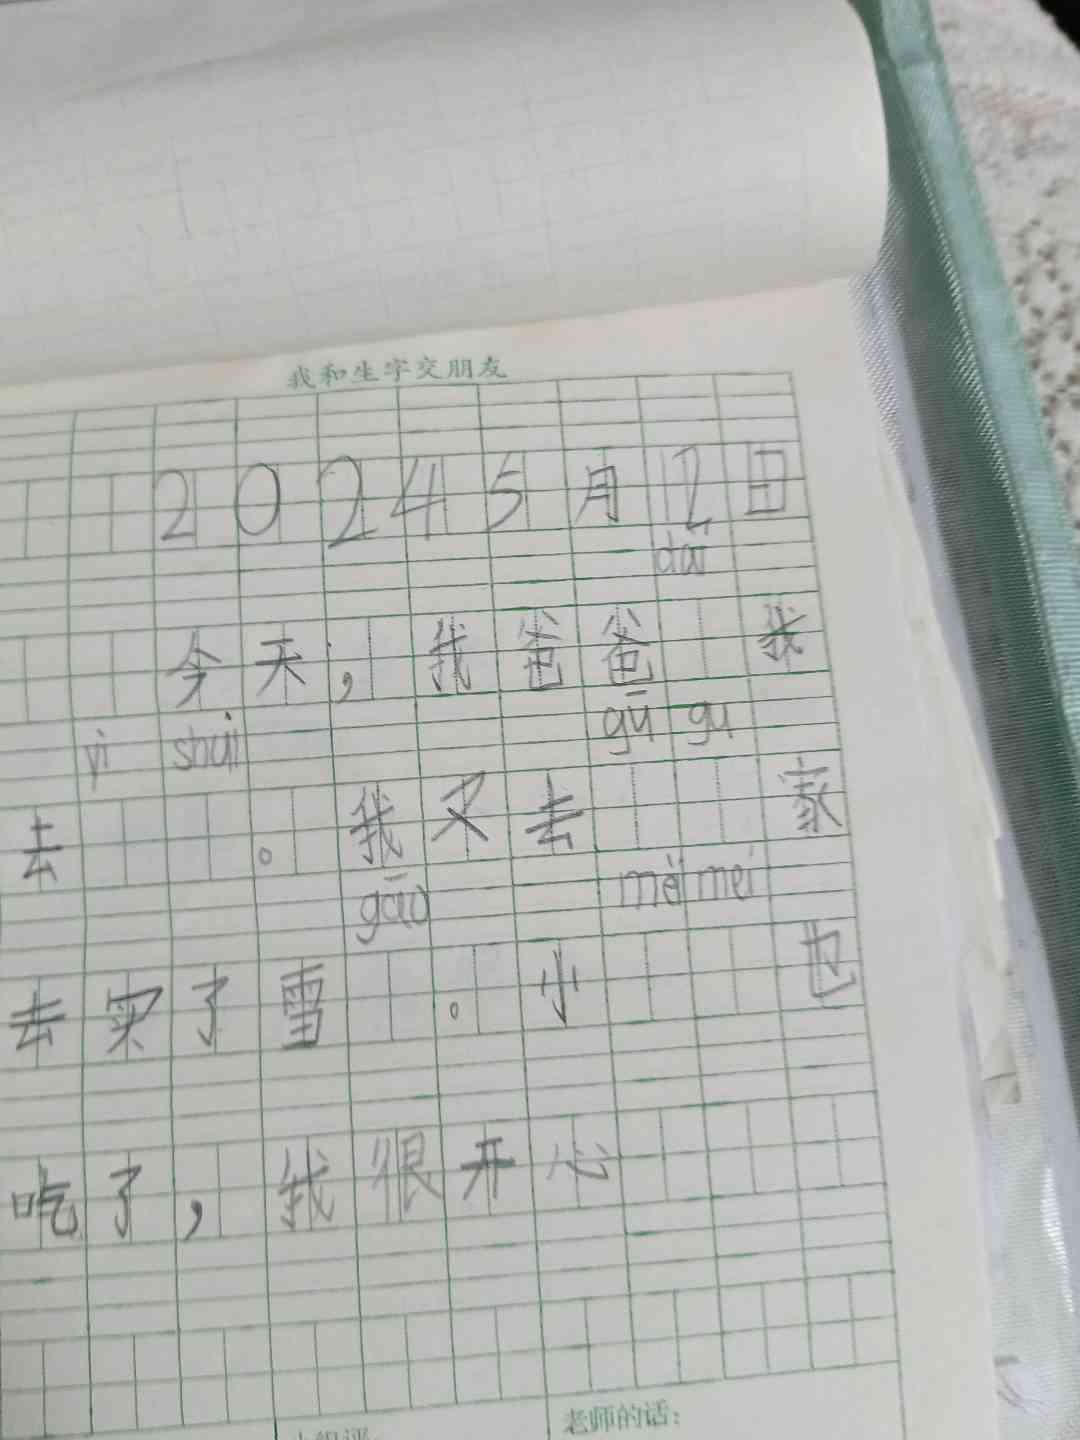 我和生字交朋友
2024 5月12日
dài
今天,我爸爸 我
yì shuì
gū gu
去 。我又去 家
gāo
mèi mei
去买了雪 。小 也
吃了,我很开心
老师的话: